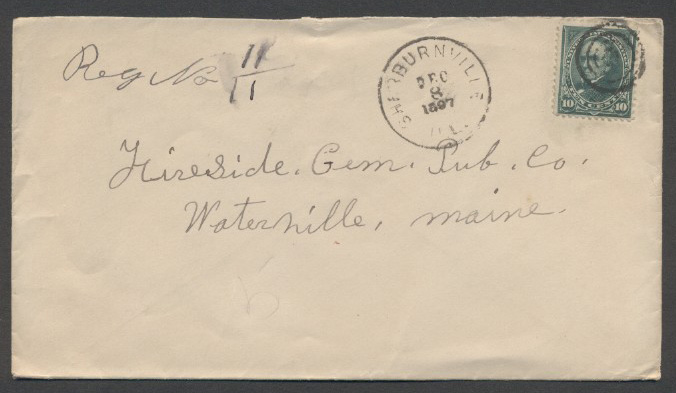 Reg No 11/11
SHERBURNVILLE
DEC
8
1897
ILL.
10 TEN CENTS 10
Fireside. Gem. Pub. Co.
Waterville, maine.